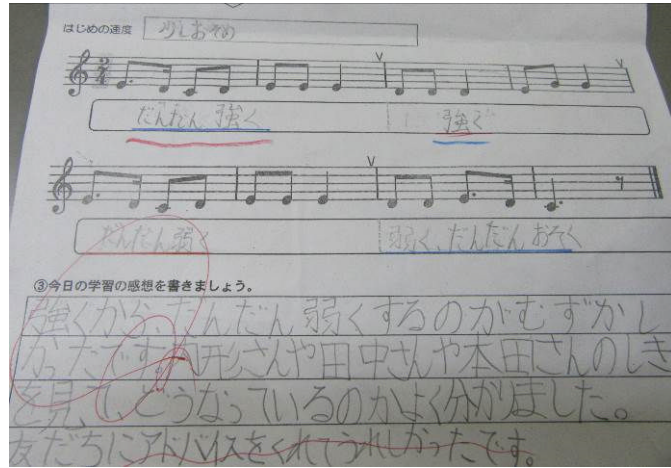 はじめの速度 少しおそめ
だんだん強く 強く
だんだん弱く 弱く、だんだんおそく
③今日の学習の感想を書きましょう。
強くから、だんだん弱くするのがむずかし
かったです。さんや田中さんや本田さんのしき
を見て、どうなっているのかよく分かりました。
友だちにアドバイスをくれてうれしかったです。